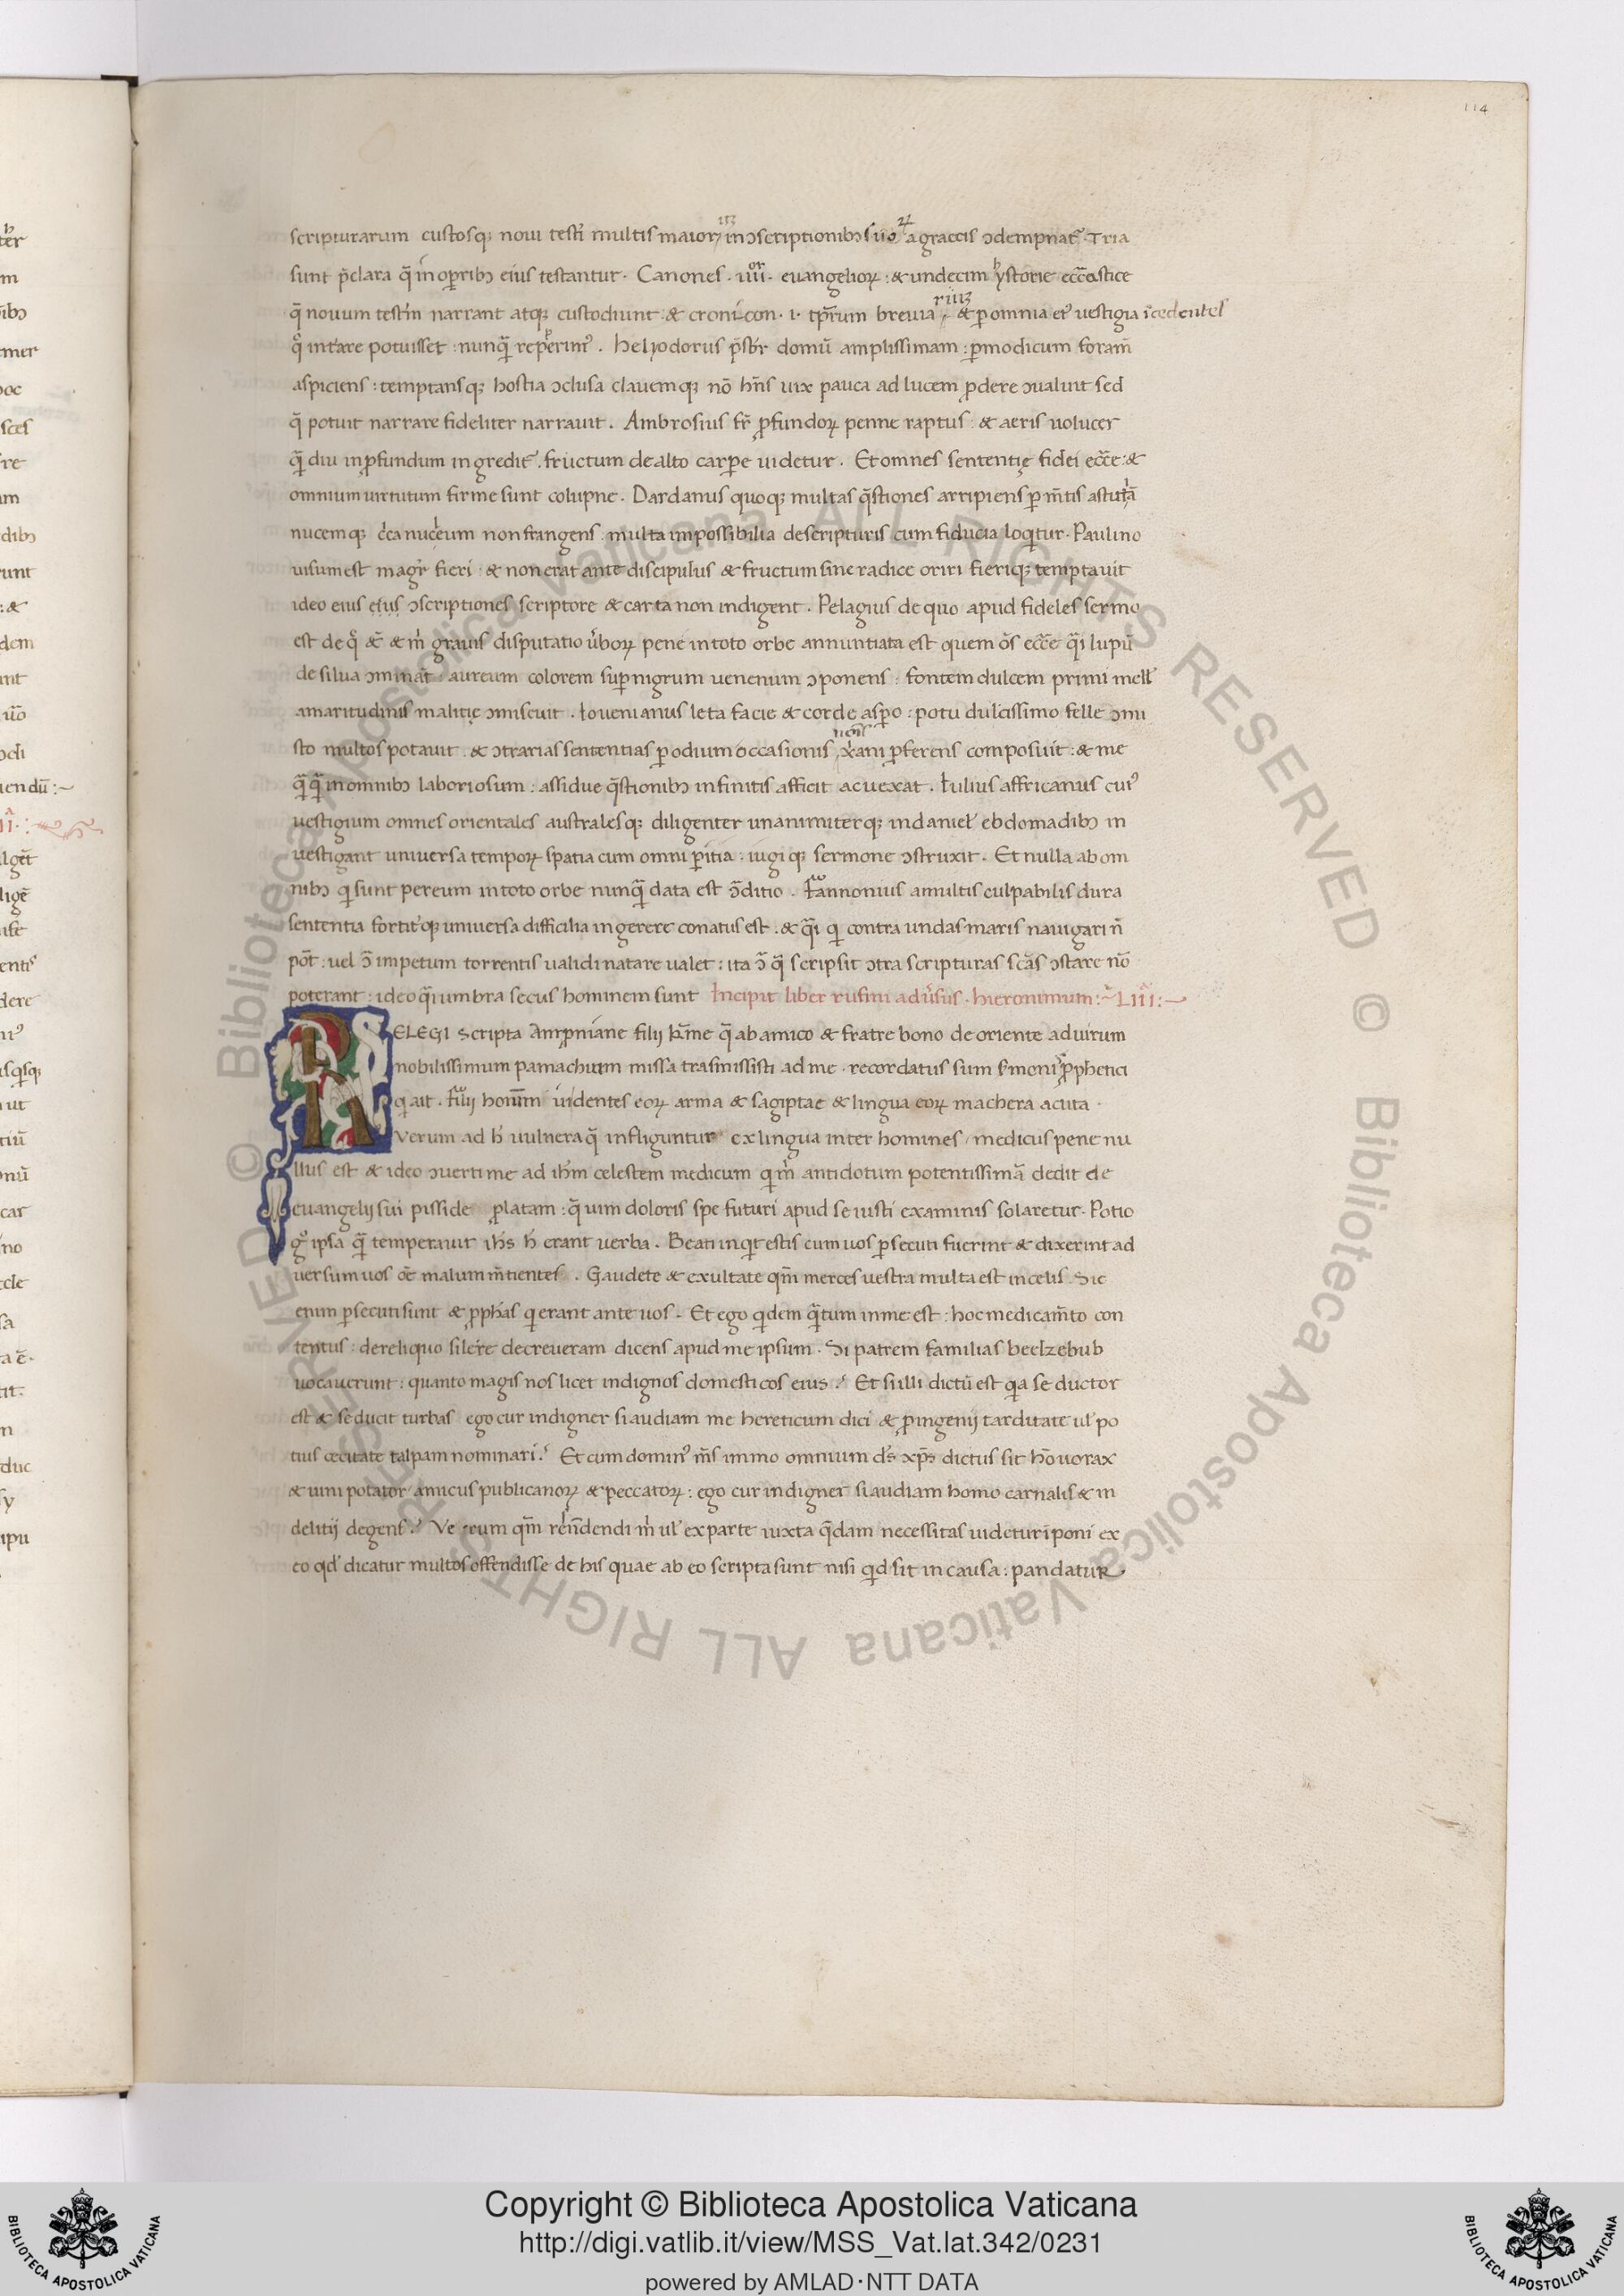 114
scripturarum custosq; noui testi multis maior, in ɔscriptionibꝫ suo a graecis ɔdempnat᷑. Tria
sunt p̄clara q̄ in opibꝫ eius testantur. Canones .iiii. euangelioꝝ : & undecim hystorie eccl̄astice
q̄ nouum testm̄ narrant atq; custodiunt : & cronicon .i. tp̄rum breuiariū & p omnia eiꝰ uestigia īcedentes
q̊ intrare potuisset : nunq̄ repperimꝰ. Heliodorus p̄sbr̄ domū amplissimam : p modicum foram̄
aspiciens : temptansq; hostia ɔclusa clauemq; nō hn̄s uix pauca ad lucem pdere ɔualuit sed
q̄ potuit narrare fideliter narrauit. Ambrosius fr̄ pfundoꝝ penne raptus : & aeris uolucer
q̄ diu in pfundum ingredit᷑ . fructum de alto carpe uidetur. Et omnes sententię fidei ecc̄e : &
omnium uirtutum firme sunt colupne. Dardanus quoq; multas q̄stiones arripiens p m̄tis astutiā
nucemq; c̄ca nuceum non frangens : multa impossibilia de scripturis cum fiducia loqitur. Paulino
uisum est magr̄ fieri : & non erat ante discipulus & fructum sine radice oriri fieriq; temptauit
ideo eius eius ɔscriptiones scriptore & carta non indigent. Pelagius de quo apud fideles sermo
est de q̊ & & m̄ grauis disputatio ūboꝝ pene in toto orbe annuntiata est quem oēs ecc̄e q̄i lupū
de silua ɔminat᷑ : aureum colorem sup nigrum uenenum ɔponens : fontem dulcem primi mell'
amaritudinis malitię ɔmiscuit. Iouenianus leta facie & corde aspo : potu dulcissimo felle ɔmi
sto multos potauit . & ɔtrarias sententias p odium occasionis x̄ani pferens composuit : & me
q̄q̄ in omnibꝫ laboriosum : assidue q̄stionibꝫ infinitis afficit ac uexat. Iulius affricanus cuiꝰ
uestigium omnes orientales australesq; diligenter unanimiterq; in daniel' ebdomadibꝫ in
uestigant uniuersa tempoꝝ spatia cum omni pitia : iugiq; sermone ɔstruxit. Et nulla ab om
nibꝫ qi sunt per eum in toto orbe nunq̄ data est ɔ̄ditio. Fannonius a multis culpabilis dura
sententia fortit᷑q; uniuersa difficilia ingerere conatus est . & q̄i qi contra undas maris nauigari n̄
pōt : uel ɔ̄ impetum torrentis ualidi natare ualet : ita ɔ̄ q̄ scripsit ɔtra scripturas scās ɔstare nō
poterant : ideo q̄i umbra secus hominem sunt Incipit liber rufini adūsus . hieronimum :~ LIII :~
RELEGI scripta Anpniane filii kr̄me q̄ ab amico & fratre bono de oriente ad uirum
nobilissimum pamachum missa trasmissisti ad me . recordatus sum s̄moni pphetici
qi ait . filij honum uidentes eoꝝ arma & sagiptae & lingua eoꝝ machera acuta .
Verum ad h' uulnera q̄ infliguntur ex lingua inter homines , medicus pene nu
llus est & ideo ɔuerti me ad ih̄m celestem medicum qi m̄ antidotum potentissimā dedit de
euangelij sui pisside platam : q̄ uim doloris spe futuri apud se iusti examinis solaretur. Potio
g̊ ipsa q̄ temperauit ih̄s h' erant uerba. Beati inqit estis cum uos psecuti fuerint & dixerint ad
uersum uos oē malum m̄tientes . Gaudete & exultate qm̄ merces uestra multa est in celis. Sic
enim psecuti sunt & pphās qi erant ante uos. Et ego qidem q̄tum in me est : hoc medicam̄to con
tentus : de reliquo silere decreueram dicens apud me ipsum. Si patrem familias beelzebub
uocauerunt : quanto magis nos licet indignos domesticos eius? Et si illi dictū est qia seductor
est & seducit turbas ego cur indigner si audiam me hereticum dici & p ingenij tarditate ul' po
tius cecitate talpam nominari? Et cum dominꝰ m̄s immo omnium d̄s xp̄s dictus sit hō uorax
& uini potator , amicus publicanoꝝ & peccatoꝝ : ego cur indigner si audiam homo carnalis & in
delitij degens? Verum qm̄ rēndendi m̄ ul' ex parte iuxta q̄dam necessitas uidetur īponi ex
eo qd' dicatur multos offendisse de his quae ab eo scripta sunt nisi qid sit in causa : pandatur
Copyright © Biblioteca Apostolica Vaticana
http://digi.vatlib.it/view/MSS_Vat.lat.342/0231
powered by AMLAD·NTT DATA
BIBLIOTECA APOSTOLICA VATICANA
BIBLIOTECA APOSTOLICA VATICANA
© Biblioteca Apostolica Vaticana ALL RIGHTS RESERVED © Biblioteca Apostolica Vaticana ALL RIGHTS RESERVED